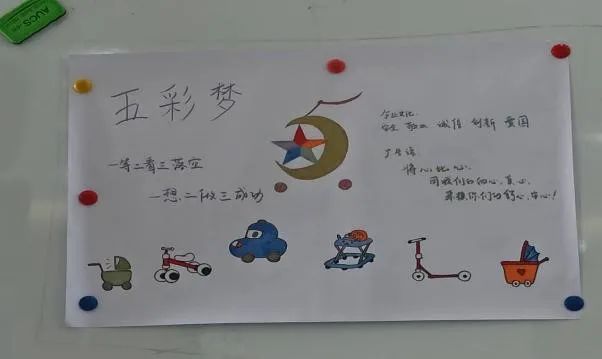 AUCS
五彩梦
一等二看三落空
一想二做三成功
企业文化:
安全 敬业 诚信 创新 爱国
广告语:
将心比心,
用我们的细心,真心,
来换你们的舒心,安心!